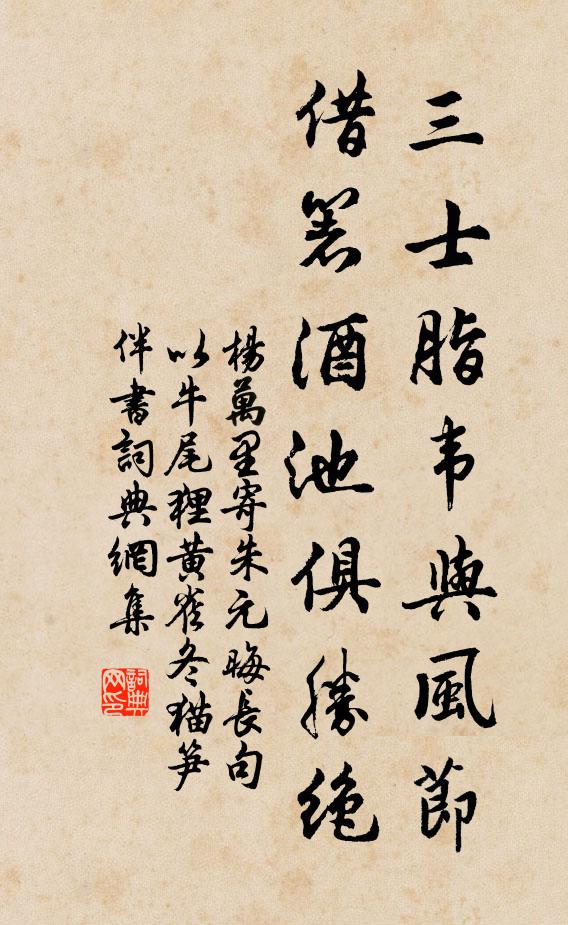 三士脂韦與風節
借箸酒池俱勝絶
楊萬里寄朱元晦長句
以牛尾狸黄雀冬猫笋
伴書詞典網集
詞典
网印